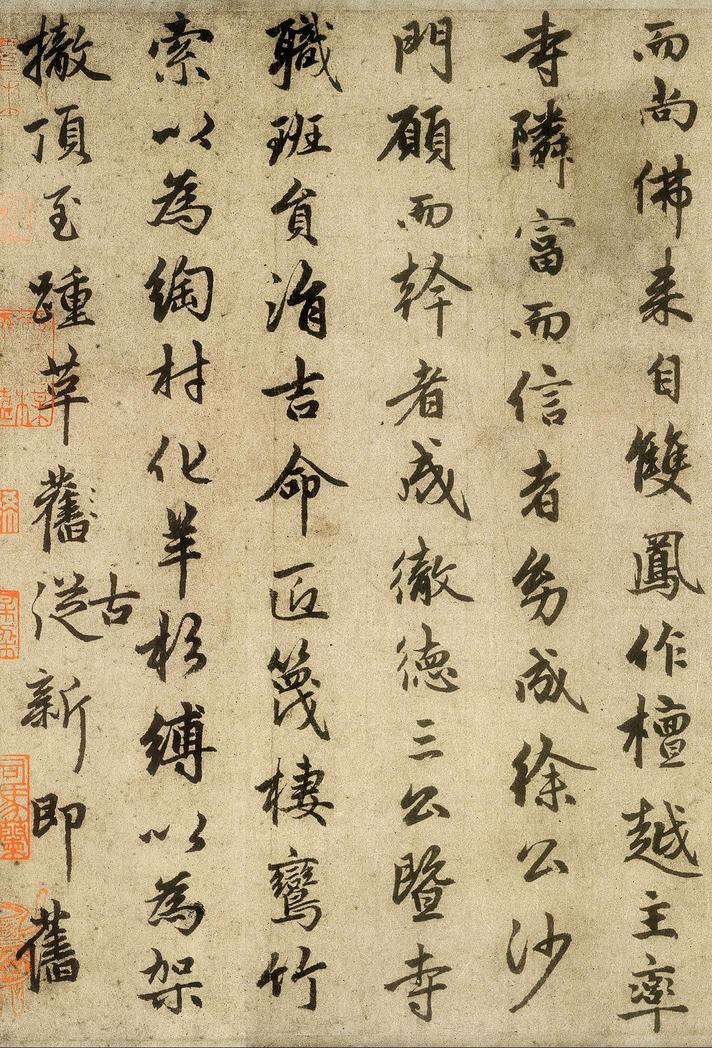 而尚佛来自雙鳳作檀越主率
寺隣富而信者成徐公沙
門願而幹者成徹德三公暨寺
職班貟涓吉命匠篾棲鸞竹
索以為綯村化羊杉縛以為架
撤頂至踵革舊從古新即舊